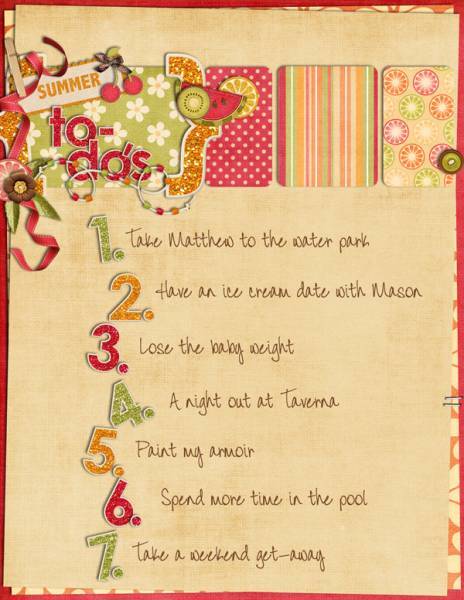 SUMMER
to-
do's
1. Take Matthew to the water park
2. Have an ice cream date with Mason
3. Lose the baby weight
4. A night out at Taverna
5. Paint my armoir
6. Spend more time in the pool
7. Take a weekend get-away